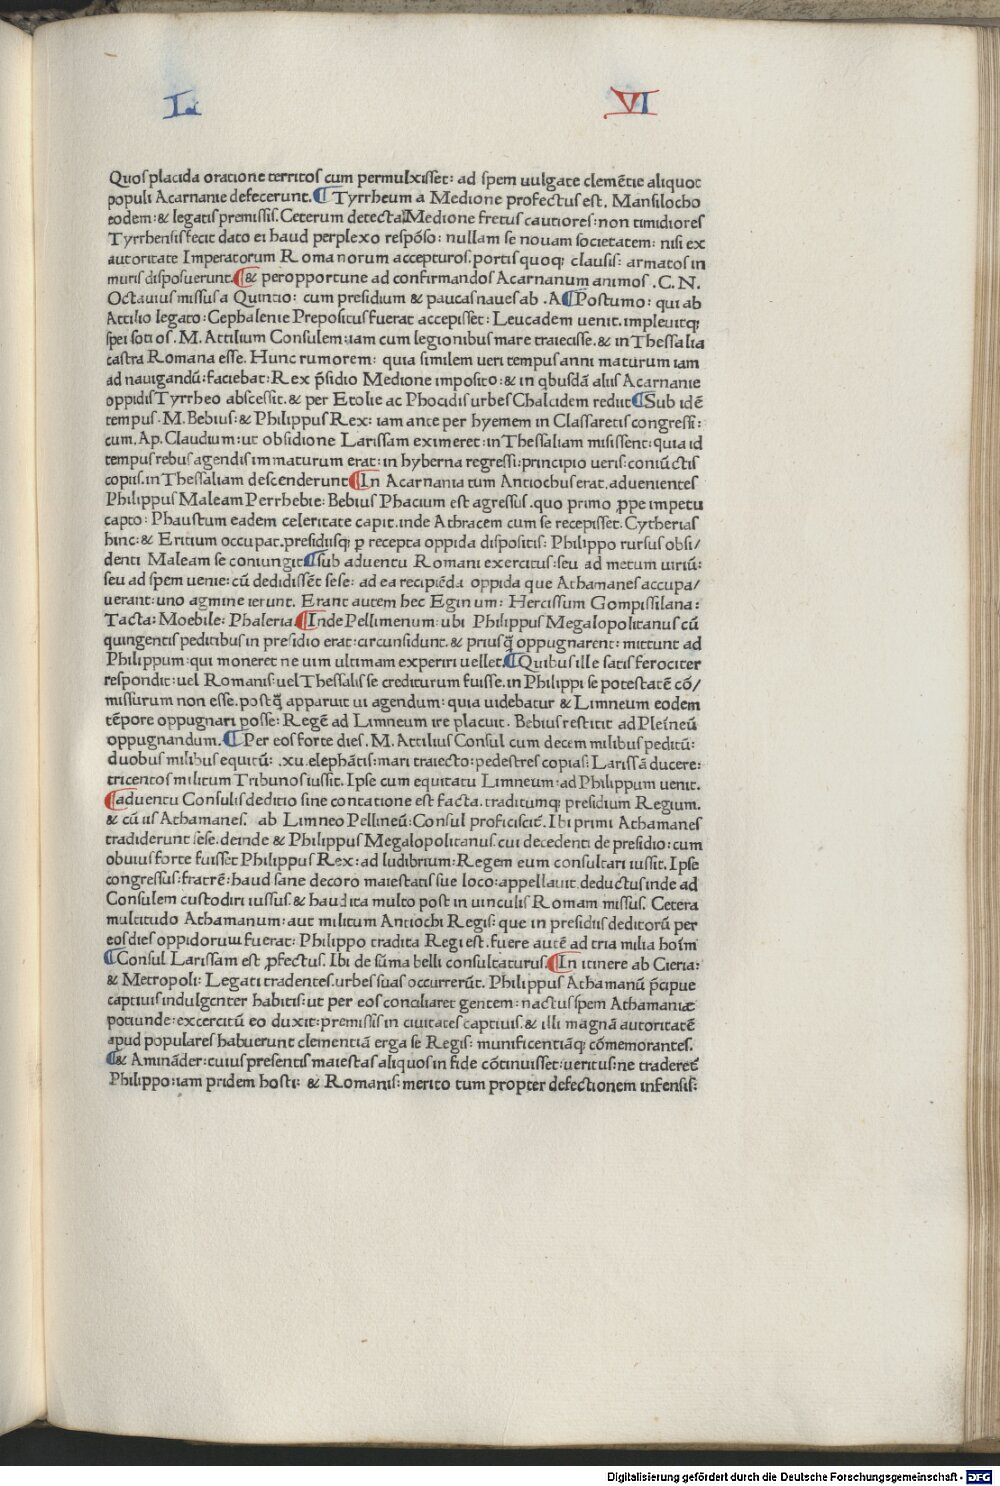 L VI
Quos placida oratione territos cum permulxisset: ad spem uulgate clemētie aliquot
populi Acarnanie defecerunt. ¶ Tyrrheum a Medione profectus est. Mansilocho
eodem: & legatis premissis. Ceterum detecta Medione fretus cautiores: non timidiores
Tyrrhensis fecit dato ei haud perplexo respōso: nullam se nouam societatem: nisi ex
autoritate Imperatorum Romanorum accepturos. portis quoq; clausis: armatos in
muris disposuerunt. ¶ & peropportune ad confirmandos Acarnanum animos .C.N.
Octauius missus a Quintio: cum presidium & paucas naues ab .A ¶ Postumo: qui ab
Attilio legato: Cephalenie Prepositus fuerat accepisset: Leucadem uenit. impleuitq;
spei sotios .M. Attilium Consulem: iam cum legionibus mare traiecisse. & in Thessalia
castra Romana esse. Hunc rumorem: quia similem ueri tempus anni maturum iam
ad nauigandū: faciebat: Rex p̄sidio Medione imposito: & in qbusdā aliis Acarnanie
oppidis Tyrrheo abscessit. & per Etolie ac Phocidis urbes Chalcidem rediit ¶ Sub idē
tempus .M. Bebius: & Philippus Rex: iam ante per hyemem in Classaretis congressi:
cum. Ap. Claudium: ut obsidione Larissam eximeret: in Thessaliam misissent: quia id
tempus rebus agendis immaturum erat: in hyberna regressi: principio ueris: coniūctis
copiis. in Thessaliam descenderunt ¶ In Acarnania tum Antiochus erat. aduenientes
Philippus Maleam Perrhebie: Bebius Phacium est agressus. quo primo ꝓpe impetu
capto: Phaustum eadem celeritate capit. inde Athracem cum se recepisset. Cytherias
hinc: & Eritium occupat. presidiisq; ꝑ recepta oppida dispositis: Philippo rursus obsi/
denti Maleam se coniungit ¶ sub aduentu Romani exercitus: seu ad metum uiriū:
seu ad spem uenie: cū dedidissēt sese: ad ea recipiēda oppida que Athamanes accupa/
uerant: uno agmine ierunt. Erant autem hec Eginum: Hercissum Gompissilana:
Tacta: Moebile: Phaleria. ¶ Inde Pellimenum: ubi Philippus Megalopolitanus cū
quingentis peditibus in presidio erat: circunsidunt. & priusq̄ oppugnarent: mittunt ad
Philippum: qui moneret ne uim ultimam experiri uellet. ¶ Quibus ille satis ferociter
respondit: uel Romanis: uel Thessalis se crediturum fuisse. in Philippi se potestatē cō/
missurum non esse. postq̄ apparuit ui agendum: quia uidebatur & Limneum eodem
tēpore oppugnari posse: Regē ad Limneum ire placuit. Bebius restitit ad Pleineū
oppugnandum. ¶ Per eos forte dies. M. Attilius Consul cum decem milibus peditū:
duobus milibus equitū: .xu. elephātis: mari traiecto: pedestres copias: Larissā ducere:
tricentos militum Tribunos iussit. Ipse cum equitatu Limneum: ad Philippum uenit.
¶ aduentu Consulis deditio sine contatione est facta. traditumq; presidium Regium.
& cū iis Athamanes. ab Limneo Pellineū: Consul proficiscit̄. Ibi primi Athamanes
tradiderunt sese. deinde & Philippus Megalopolitanus. cui decedenti de presidio: cum
obuius forte fuisset Philippus Rex: ad ludibrium: Regem eum consultari iussit. Ipse
congressus: fratrē: haud sane decoro maiestatis sue loco: appellauit. deductus inde ad
Consulem custodiri iussus. & haud ita multo post in uinculis Romam missus. Cetera
multitudo Athamanum: aut militum Antiochi Regis: que in presidiis deditorū per
eos dies oppidorum fuerat: Philippo tradita Regi est. fuere autē ad tria milia hoīm
¶ Consul Larissam est ꝓfectus. Ibi de sūma belli consultaturus. ¶ In itinere ab Cieria:
& Metropoli: Legati tradentes. urbes suas occurrerūt. Philippus Athamanū p̄cipue
captiuis indulgenter habitis: ut per eos conciliaret gentem: nactus spem Athamaniæ
potiunde: excercitū eo duxit: premissis in ciuitates captiuis. & illi magnā autoritatē
apud populares habuerunt clementiā erga se Regis: munificentiāq; cōmemorantes.
¶ & Amināder: cuius presentis maiestas aliquos in fide cōtinuisset: ueritus: ne traderet̄
Philippo: iam pridem hosti: & Romanis: merito tum propter defectionem infensis:
Digitalisierung gefördert durch die Deutsche Forschungsgemeinschaft - DFG